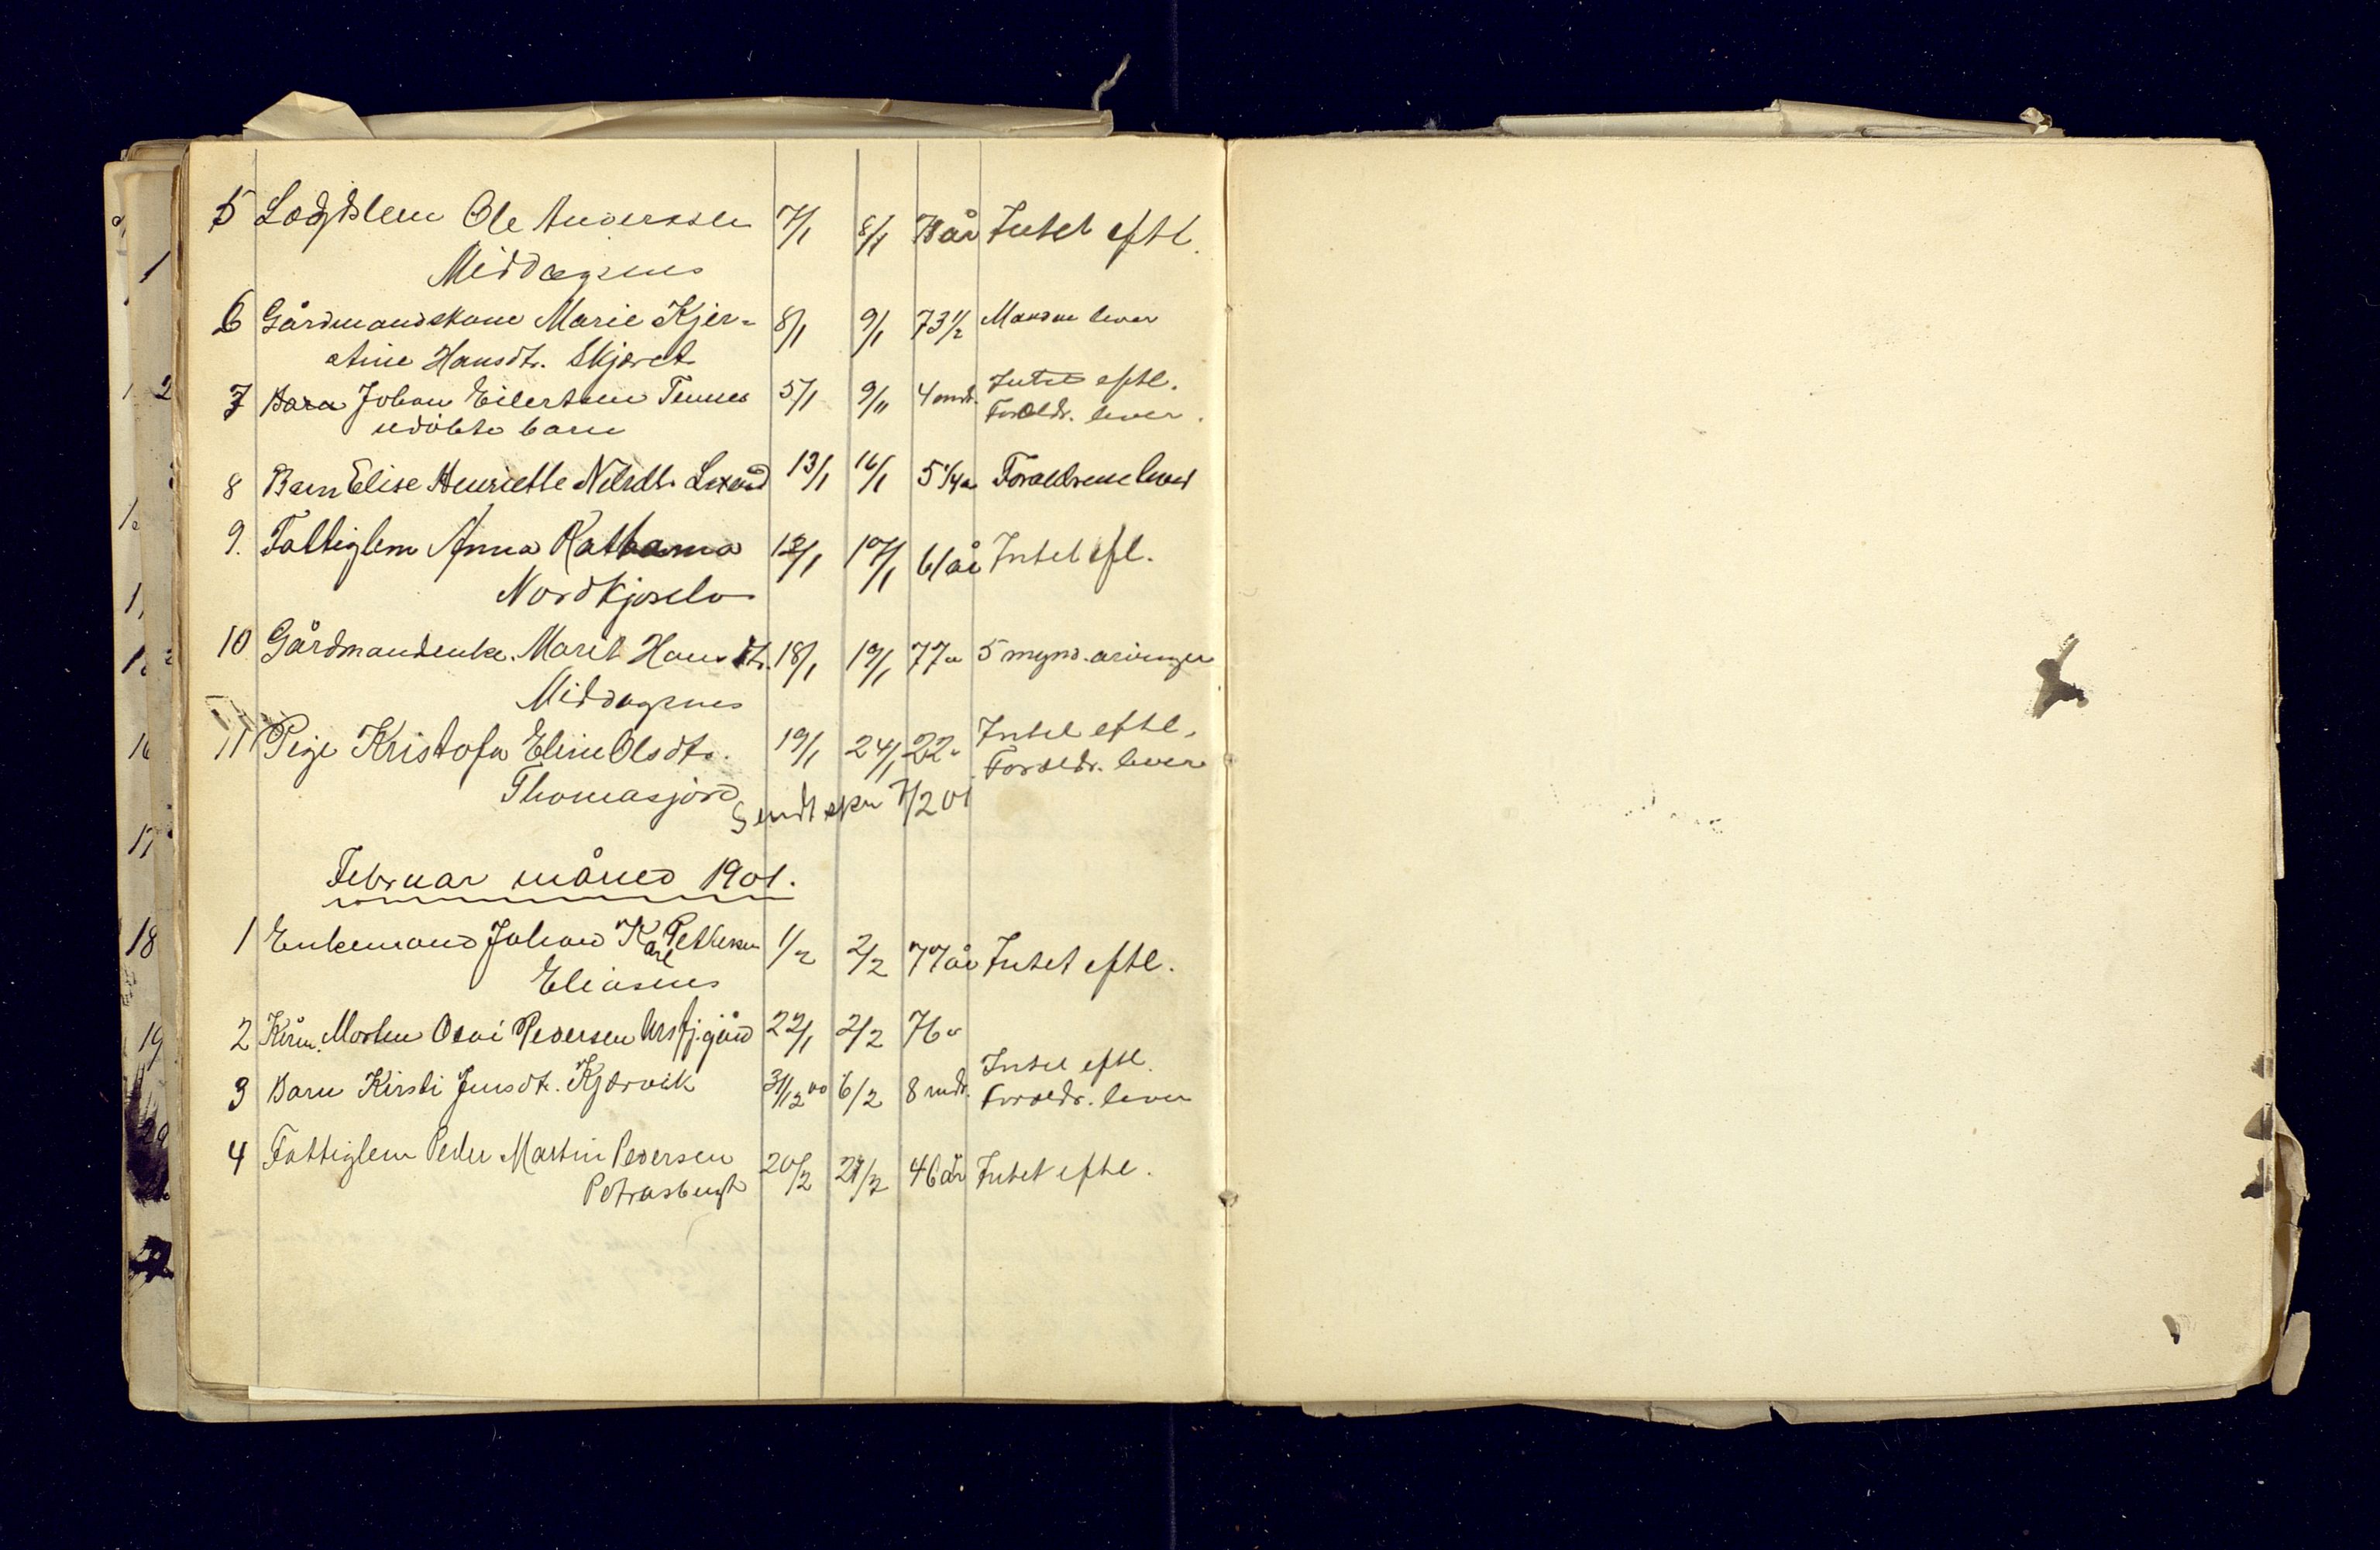 5 Lægdslem Ole Anderssen 7/1 8/1 73 år Intet eftl.
Middagsnes
6 Gårdmandskone Marie Kjer- 8/1 9/1 73 1/2 Manden lever
stine Hansdt. Skjæret
7 Barn Johan Eilertsen Tennes 5/1 9/1 4 mdr. Intet eftl.
udöbte barn Foreldr. lever.
8 Barn Elise Henriette Nilsdt. 13/1 16/1 5 1/4 a Forældrene lever
9. Fattiglem Anna 12/1 17/1 61 år Intet eftl.
Nordkjoselv
10 Gårdmandenke Marit Hansdt. 18/1 19/1 77 a 5 mynd. arvinger
Middagsnes
11 Pige Kristofa Elin Olsdt. 19/1 24/1 22 a Intet eftl.
Thomasjord Foreldr. lever
Sendt skr 7/2 01
Februar måned 1901.
1 Enkemand Johan Karl Pettersen 1/2 2/2 77 år Intet eftl.
Eliasnes
2 Kårm. Morten Pedersen 22/1 2/2 76 a
3 Barn Kirsti Jensdt. Kjærvik 31/12 00 6/2 8 mdr. Intet eftl.
Foreldr. lever
4 Fattiglem Peder Martin Pedersen 20/2 21/2 46 år Intet eftl.